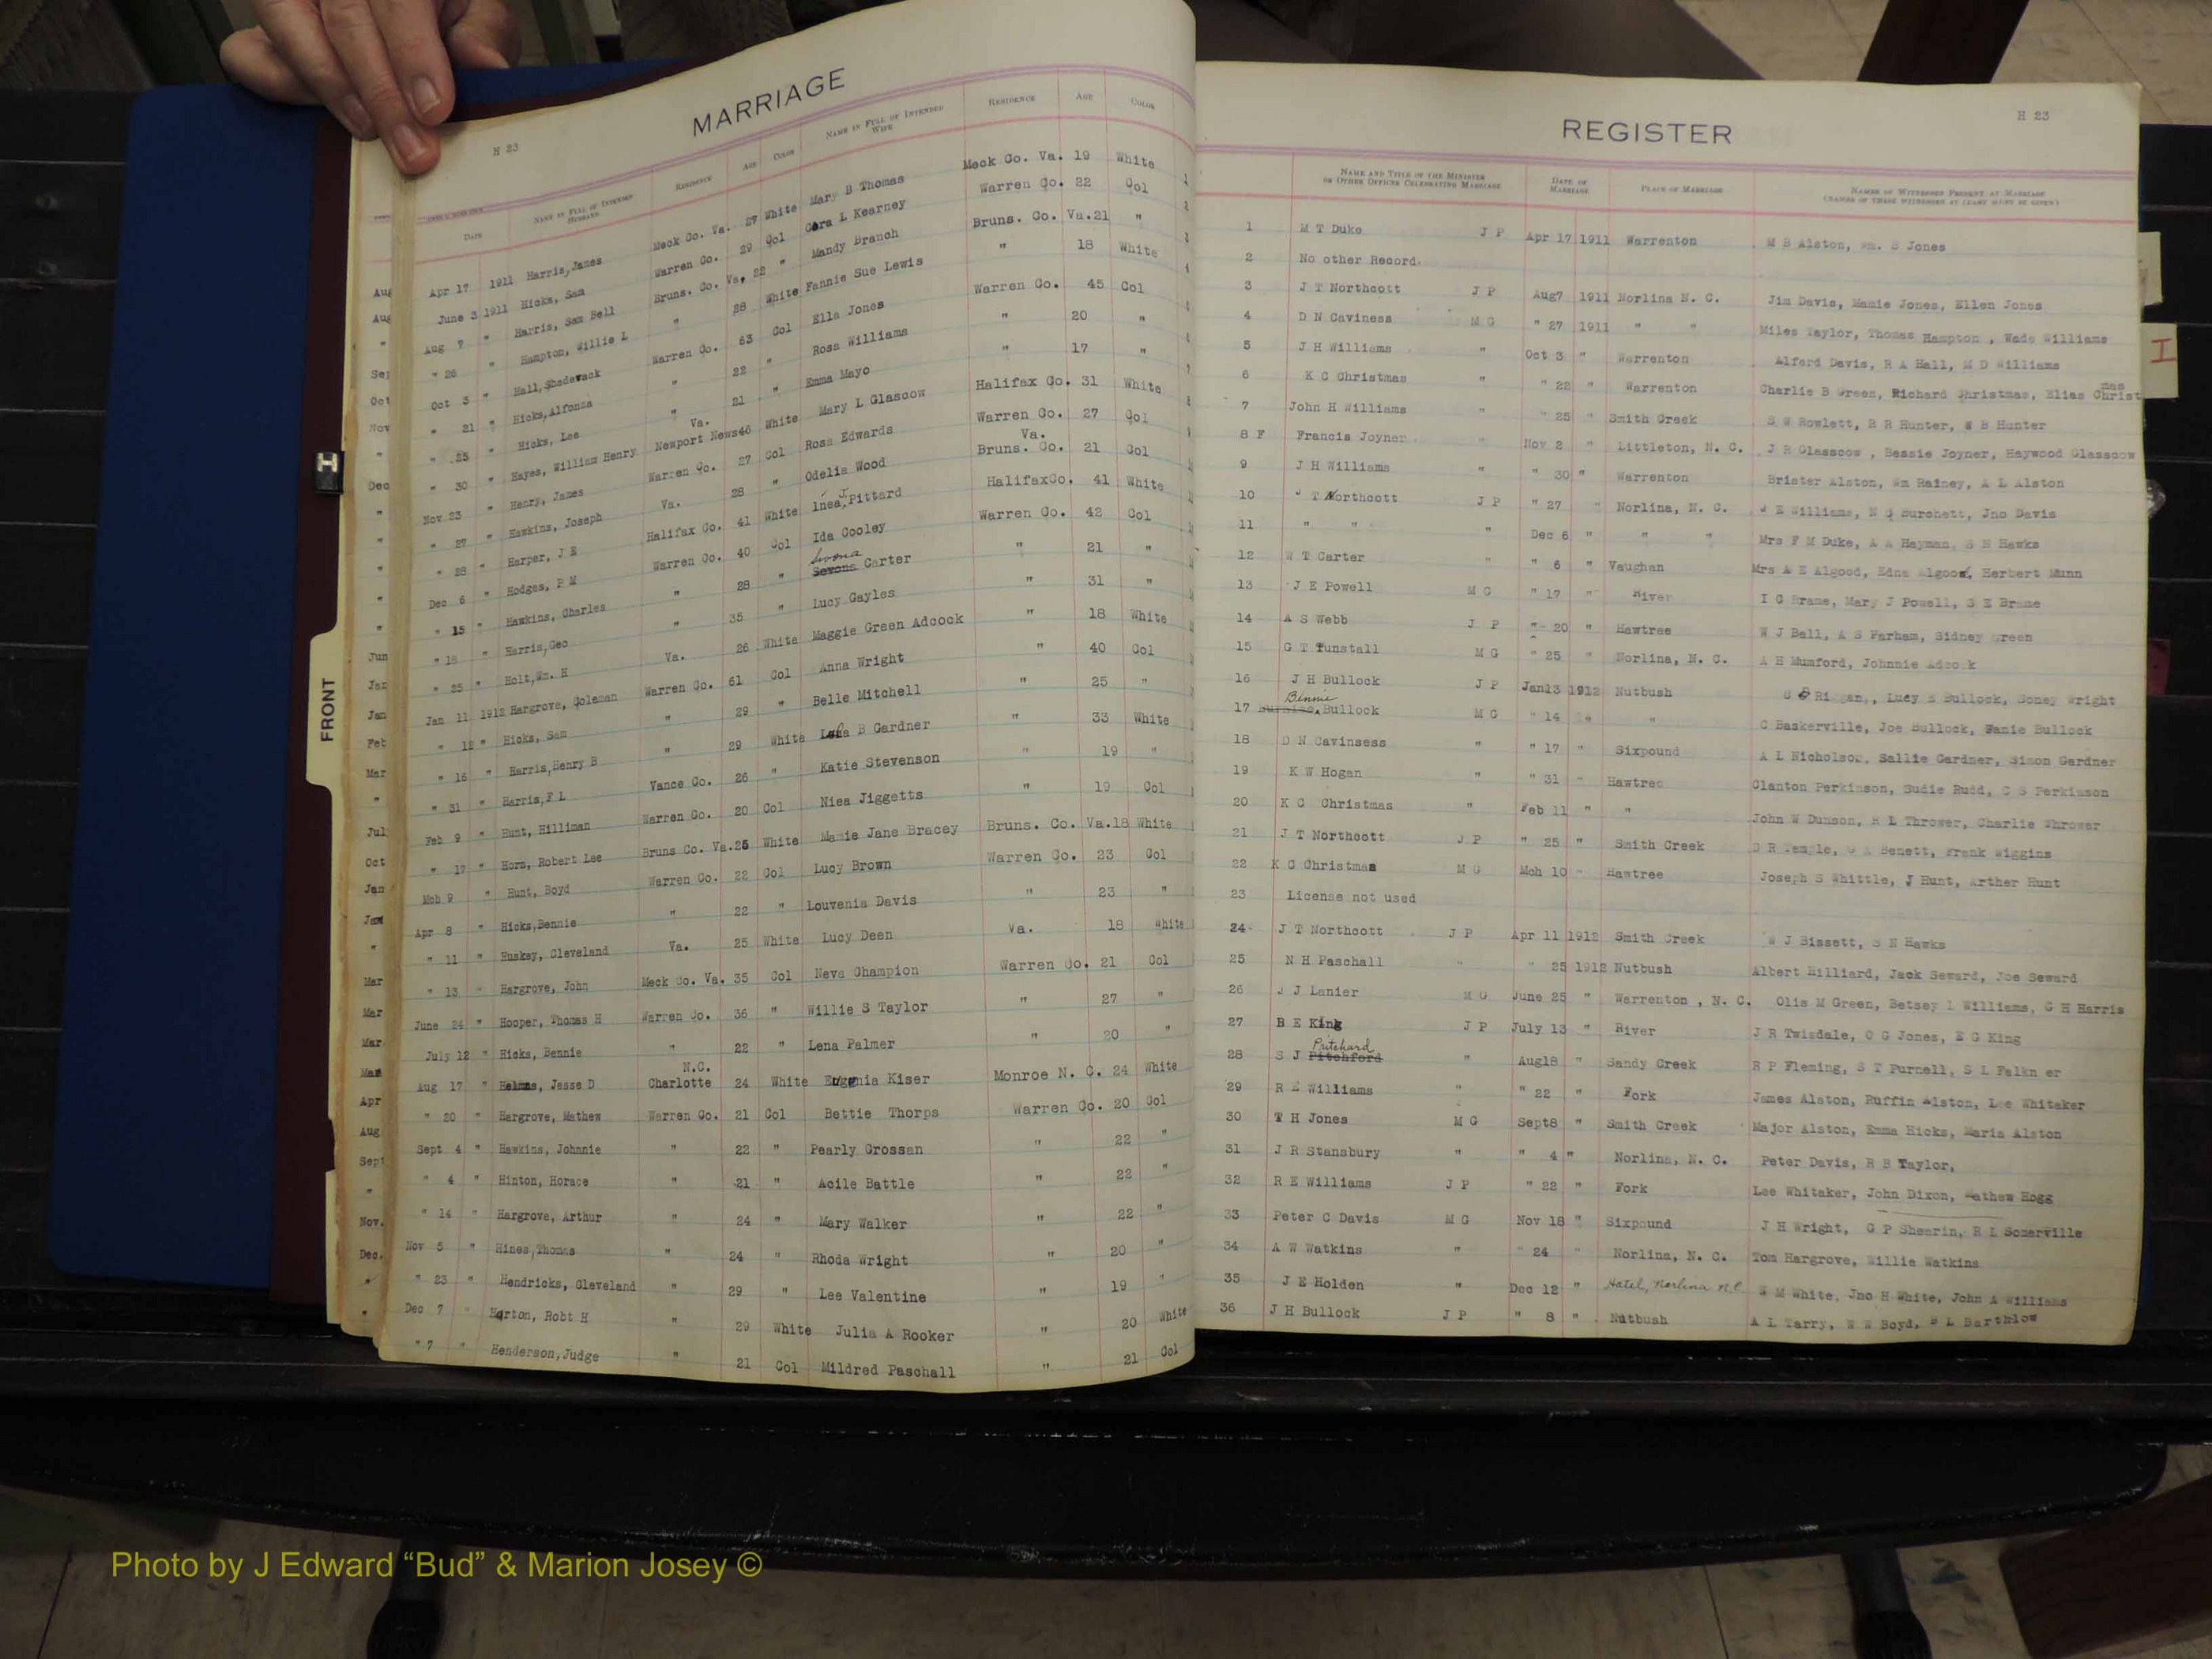 MARRIAGE
H 23
DATE NAME IN FULL OF INTENDED HUSBAND RESIDENCE AGE COLOR NAME IN FULL OF INTENDED WIFE RESIDENCE AGE COLOR
Apr 17 1911 Harris,James Meck Co. Va. 27 White Mary B Thomas Meck Co. Va. 19 White
June 3 1911 Hicks, Sam Warren Co. 29 Col Cora L Kearney Warren Co. 22 Col
Aug 7 " Harris, Sam Bell Bruns. Co. Va. 22 " Mandy Branch Bruns. Co. Va.21 "
" 26 " Hampton, Willie L " 28 White Fannie Sue Lewis " 18 White
Oct 3 " Hall,Shadevack Warren Co. 63 Col Ella Jones Warren Co. 45 Col
" 21 " Hicks,Alfonza " 22 " Rosa Williams " 20 "
" 25 " Hicks, Lee " 21 " Emma Mayo " 17 "
" 30 " Hayes, William Henry Newport News Va. 46 White Mary L Glascow Halifax Co. 31 White
Nov 23 " Henry, James Warren Co. 27 Col Rosa Edwards Warren Co. 27 Col
" 27 " Hawkins, Joseph Va. 28 " Odelia Wood Bruns. Co. Va. 21 Col
" 28 " Harper, J E Halifax Co. 41 White Inea J Pittard HalifaxCo. 41 White
Dec 6 " Hodges, P M Warren Co. 40 Col Ida Cooley Warren Co. 42 Col
" 15 " Hawkins, Charles " 28 " Carter " 21 "
" 18 " Harris,Geo " 35 " Lucy Gayles " 31 "
" 25 " Holt,Wm. H Va. 26 White Maggie Green Adcock " 18 White
Jan 11 1912 Hargrove, Coleman Warren Co. 61 Col Anna Wright " 40 Col
" 12 " Hicks, Sam " 29 " Belle Mitchell " 25 "
" 16 " Harris,Henry B " 29 White B Gardner " 33 White
" 31 " Harris,F L Vance Co. 26 " Katie Stevenson " 19 "
Feb 9 " Hunt, Hilliman Warren Co. 20 Col Niea Jiggetts " 19 Col
" 17 " Horn, Robert Lee Bruns Co. Va.25 White Mamie Jane Bracey Bruns. Co. Va.18 White
Mch 9 " Hunt, Boyd Warren Co. 22 Col Lucy Brown Warren Co. 23 Col
Apr 8 " Hicks,Bennie " 22 " Louvenia Davis " 23 "
" 11 " Huskey, Cleveland Va. 25 White Lucy Deen Va. 18 White
" 13 " Hargrove, John Meck Co. Va. 35 Col Neva Champion Warren Co. 21 Col
June 24 " Hooper, Thomas H Warren Co. 36 " Willie S Taylor " 27 "
July 12 " Hicks, Bennie " 22 " Lena Palmer " 20 "
Aug 17 " Helms, Jesse D Charlotte N.C. 24 White Eugenia Kiser Monroe N. C. 24 White
" 20 " Hargrove, Mathew Warren Co. 21 Col Bettie Thorps Warren Co. 20 Col
Sept 4 " Hawkins, Johnnie " 22 " Pearly Grossan " 22 "
" 4 " Hinton, Horace " 21 " Acile Battle " 22 "
" 14 " Hargrove, Arthur " 24 " Mary Walker " 22 "
Nov 5 " Hines,Thomas " 24 " Rhoda Wright " 20 "
" 23 " Hendricks, Cleveland " 29 " Lee Valentine " 19 "
Dec 7 " Horton, Robt H " 29 White Julia A Rooker " 20 White
" 7 " Henderson,Judge " 21 Col Mildred Paschall " 21 Col
REGISTER
H 23
NAME AND TITLE OF THE MINISTER OR OTHER OFFICER CELEBRATING MARRIAGE DATE OF MARRIAGE PLACE OF MARRIAGE NAMES OF WITNESSES PRESENT AT MARRIAGE
1 M T Duke J P Apr 17 1911 Warrenton M B Alston, Wm. B Jones
2 No other Record.
3 J T Northcott J P Aug7 1911 Norlina N. C. Jim Davis, Mamie Jones, Ellen Jones
4 D N Caviness M G " 27 1911 " " Miles Taylor, Thomas Hampton , Wade Williams
5 J H Williams " Oct 3 " Warrenton Alferd Davis, R A Hall, M D Williams
6 K C Christmas " " 22 " Warrenton Charlie B Green, Richard Christmas, Elias Christmas
7 John H Williams " " 25 " Smith Creek S W Rowlett, R R Hunter, W B Hunter
8 F Francis Joyner " Nov 2 " Littleton, N. C. J R Glasscow , Bessie Joyner, Haywood Glasscow
9 J H Williams " " 30 " Warrenton Brister Alston, Wm Rainey, A L Alston
10 J T Northcott J P " 27 " Norlina, N. C. J E Williams, Burchett, Jno Davis
11 " " " Dec 6 " " " Mrs F M Duke, A A Hayman, S N Hawks
12 W T Carter " " 6 " Vaughan Mrs A E Algood, Edna Algood, Herbert Munn
13 J E Powell M G " 17 " River I G Brame, Mary J Powell, S E Brame
14 A S Webb J P " 20 " Hawtree W J Ball, A S Parham, Sidney Green
15 G T Tunstall M G " 25 " Norlina, N. C. A H Mumford, Johnnie Adcock
16 J H Bullock J P Jan13 1912 Nutbush Riggan,, Lucy E Bullock, Soney Wright
17 Binnie Bullock M G " 14 " " C Baskerville, Joe Bullock, Fanie Bullock
18 D N Cavinsess " " 17 " Sixpound A L Nicholson, Sallie Gardner, Simon Gardner
19 K W Hogan " " 31 " Hawtree Clanton Perkinson, Sudie Rudd, C S Perkinson
20 K C Christmas " Feb 11 " " John W Dunson, R L Thrower, Charlie Thrower
21 J T Northcott J P " 25 " Smith Creek D R Temple, Benett, Frank Wiggins
22 K C Christmas M G Mch 10 " Hawtree Joseph S Whittle, J Hunt, Arther Hunt
23 License not used
24 J T Northcott J P Apr 11 1912 Smith Creek W J Bissett, S N Hawks
25 N H Paschall " " 25 1912 Nutbush Albert Hilliard, Jack Seward, Joe Seward
26 J J Lanier M G June 25 " Warrenton , N. C. Olis M Green, Betsey L Williams, G H Harris
27 B E King J P July 13 " River J R Twisdale, O G Jones, E G King
28 S J Pitchford Pritchard " Aug18 " Sandy Creek R P Fleming, S T Purnell, S L Falkn er
29 R E Williams " " 22 " Fork James Alston, Ruffin Alston, Lee Whitaker
30 T H Jones M G Sept8 " Smith Creek Major Alston, Emma Hicks, Maria Alston
31 J R Stansbury " " 4 " Norlina, N. C. Peter Davis, R B Taylor,
32 R E Williams J P " 22 " Fork Lee Whitaker, John Dixon, Mathew Hogg
33 Peter C Davis M G Nov 18 " Sixpound J H Wright, G P Shearin, R L Somerville
34 A W Watkins " " 24 " Norlina, N. C. Tom Hargrove, Willie Watkins
35 J E Holden " Dec 12 " Hotel, Norlina N.C. W M White, Jno H White, John A Williams
36 J H Bullock J P " 8 " Nutbush A L Tarry, W W Boyd, B L Barthlow
FRONT
H
I
Photo by J Edward “Bud” & Marion Josey ©